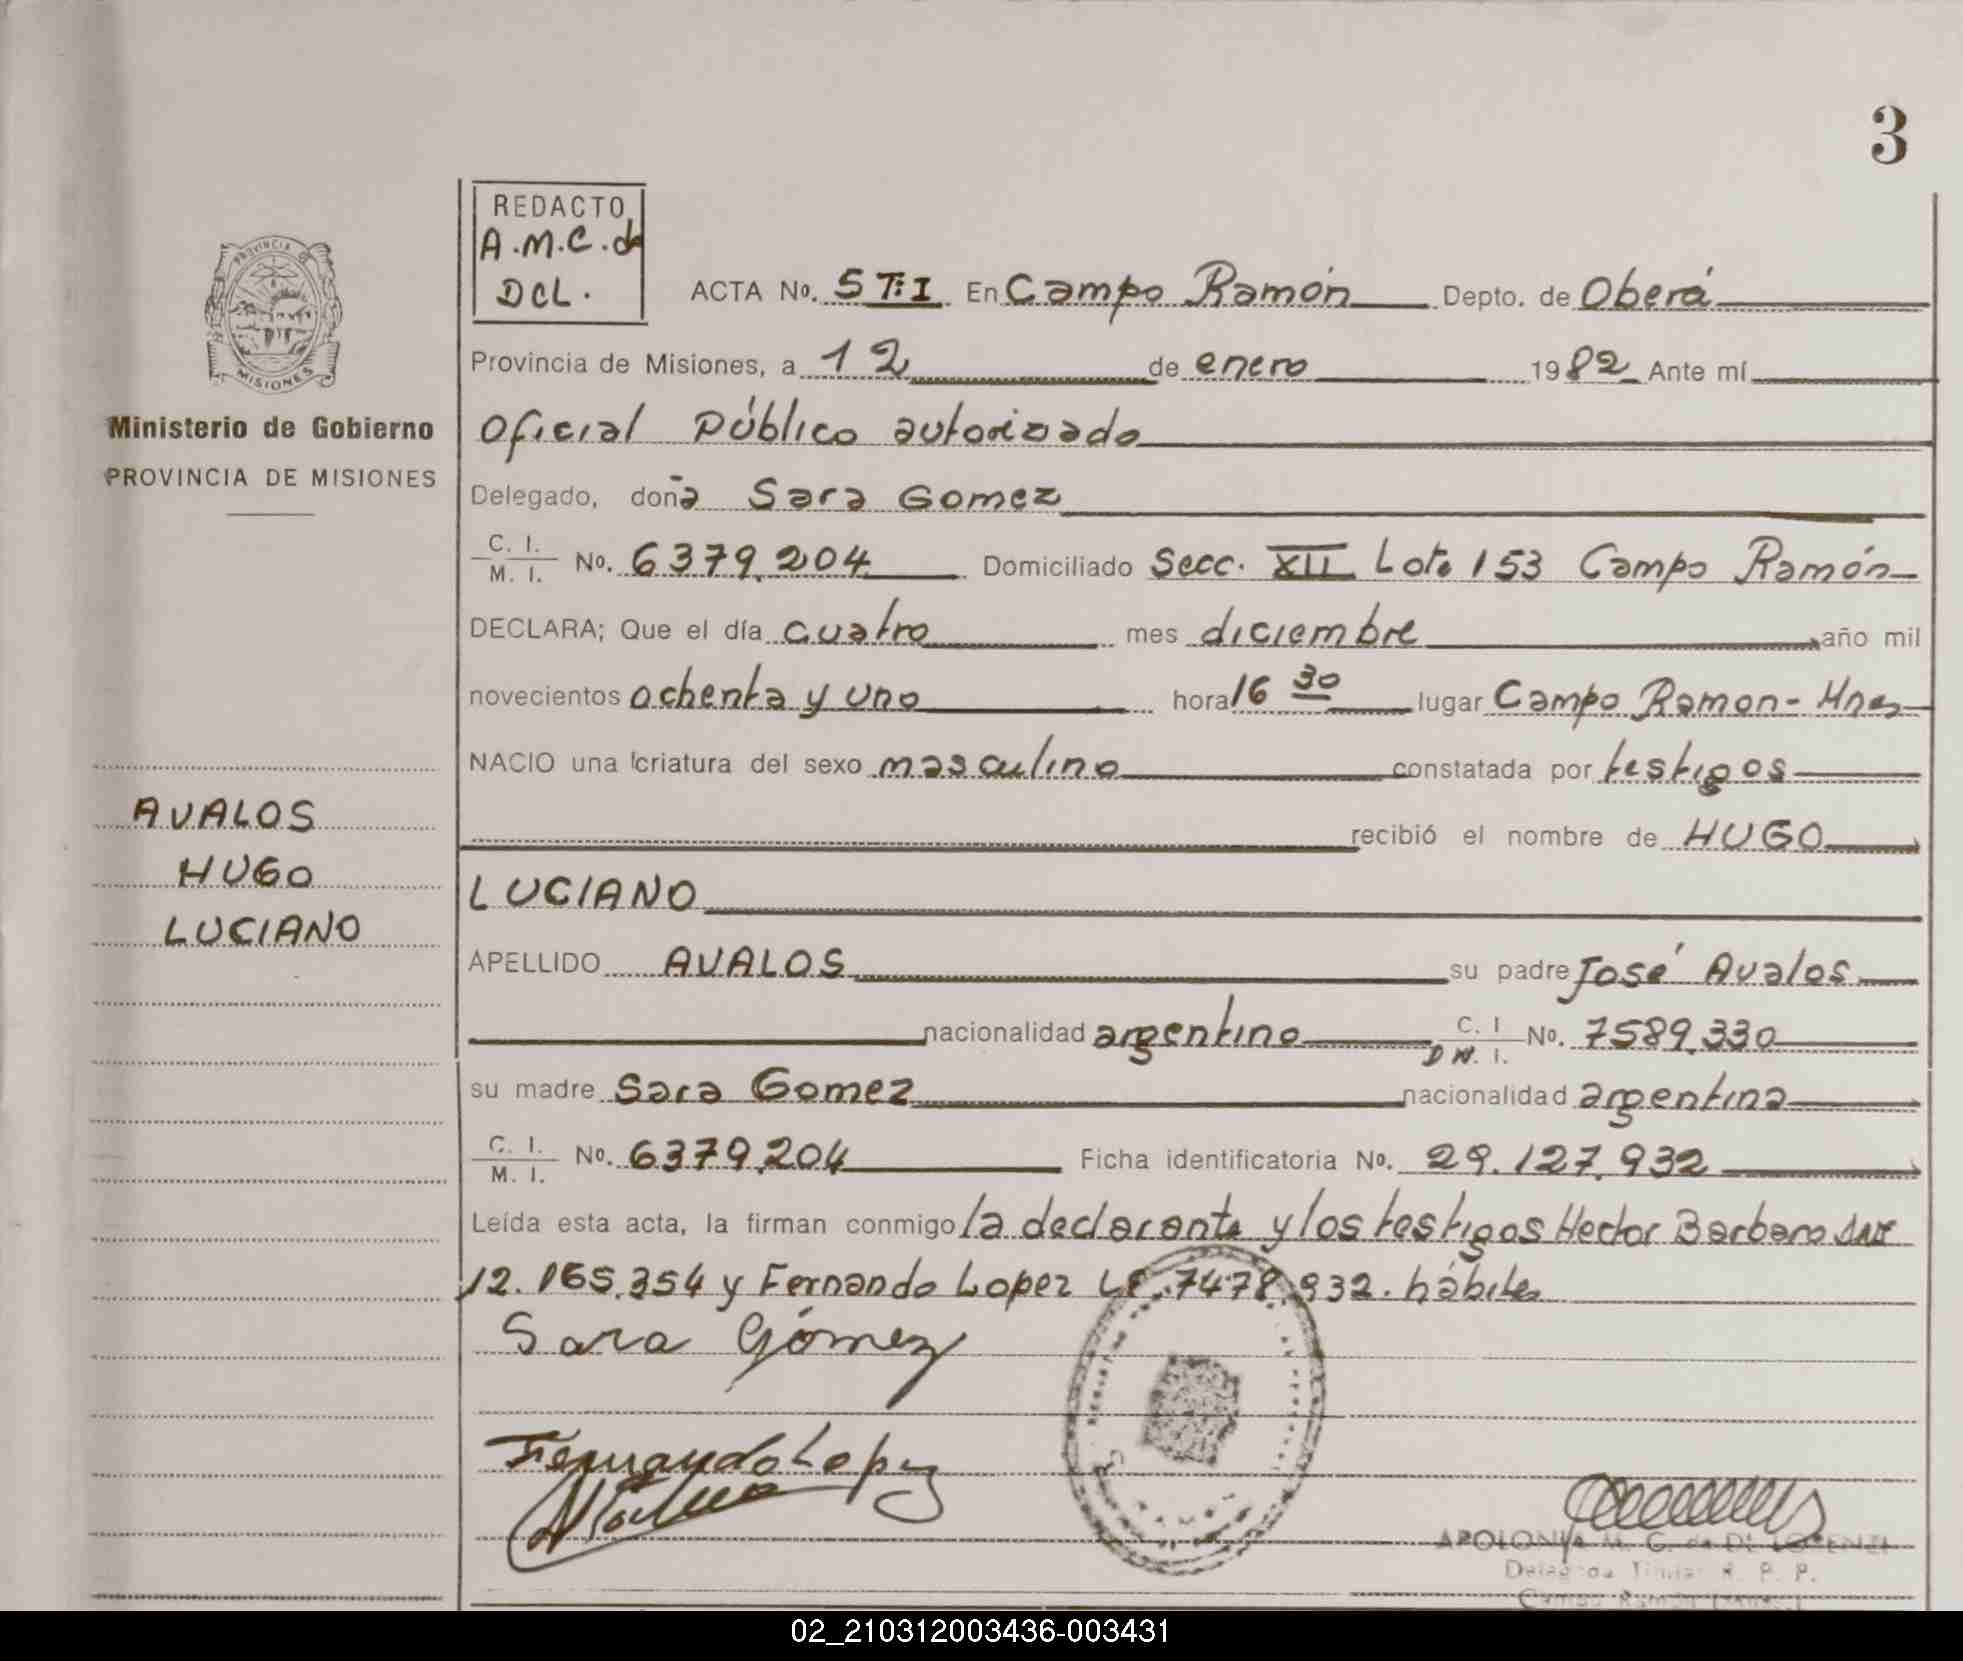 3
REDACTO
A.M.C. de
DCL.
ACTA No. 5 T:I En Campo Ramón Depto. de Oberá
Provincia de Misiones, a 12 de enero 1982 Ante mí
Oficial Público autorizado
Delegado, doña Sara Gomez
C. I. / M. I. No. 6379.204 Domiciliado Secc. XII Lote 153 Campo Ramón
DECLARA; Que el día cuatro mes diciembre año mil
novecientos ochenta y uno hora 16 30 lugar Campo Ramon - Mnes
NACIO una criatura del sexo masculino constatada por testigos
recibió el nombre de HUGO
LUCIANO
APELLIDO AVALOS su padre José Avalos
nacionalidad argentino C. I / D N. I. No. 7589.330
su madre Sara Gomez nacionalidad argentina
C. I. / M. I. No. 6379.204 Ficha identificatoria No. 29.127.932
Leída esta acta, la firman conmigo la declarante y los testigos Hector Barbaro DNI
12.165.354 y Fernando Lopez LE. 7478.932. hábiles
Sara Gómez
Fernando Lopez
APOLONIA M. C. de DI LORENZI
Delegada Titular R. P. P.
Campo Ramón
PROVINCIA DE
MISIONES
Ministerio de Gobierno
PROVINCIA DE MISIONES
AVALOS
HUGO
LUCIANO
02_210312003436-003431